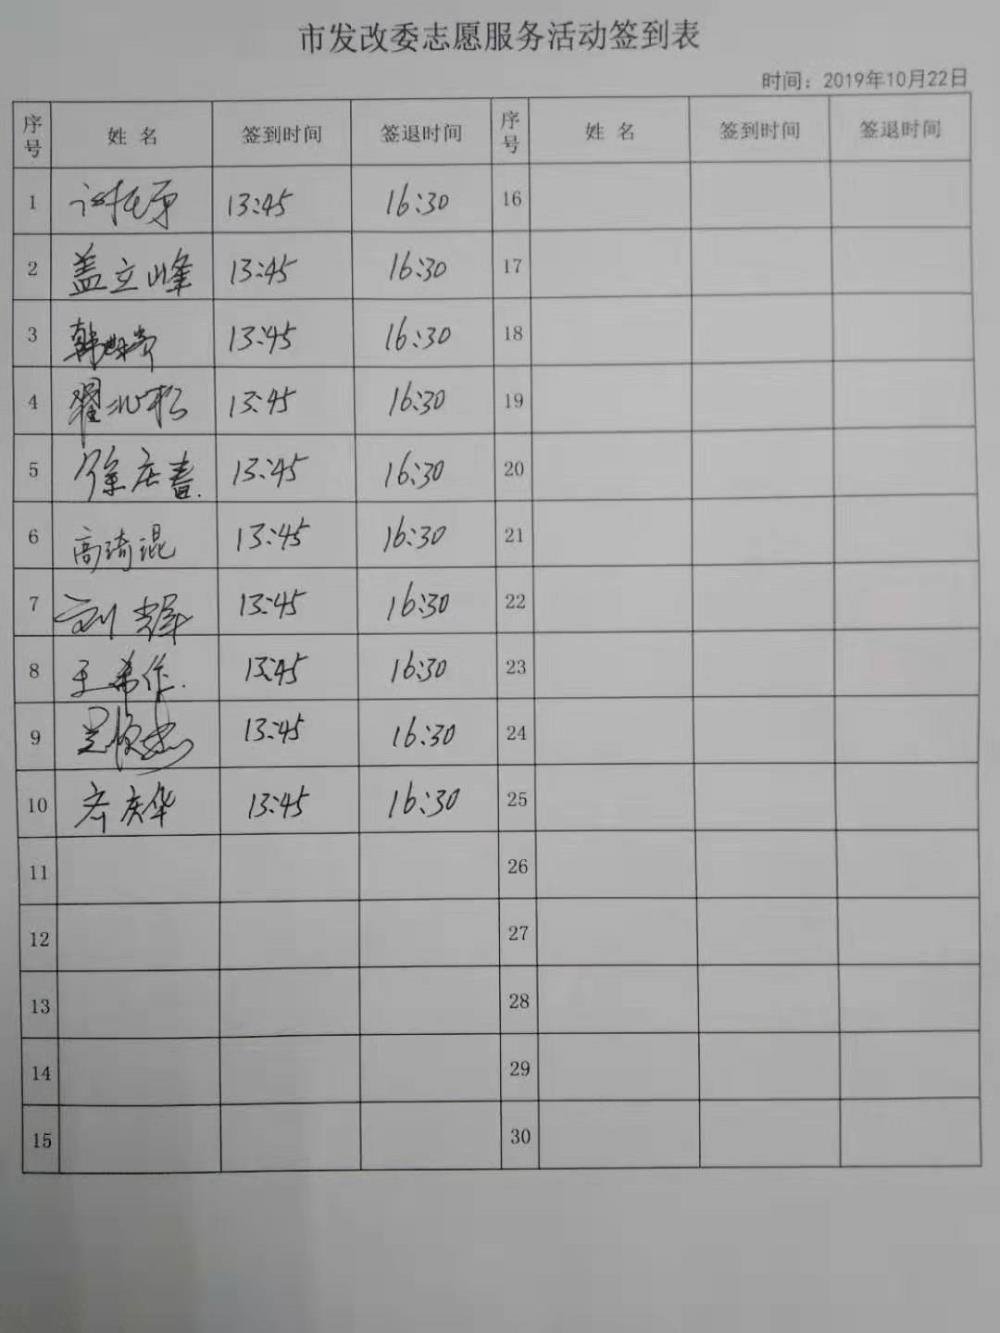 市发改委志愿服务活动签到表
时间：2019年10月22日
序号 姓 名 签到时间 签退时间 序号 姓 名 签到时间 签退时间
1 13:45 16:30 16
2 盖立峰 13:45 16:30 17
3 韩 13:45 16:30 18
4 翟 松 13:45 16:30 19
5 徐庆春 13:45 16:30 20
6 高琦混 13:45 16:30 21
7 刘光辉 13:45 16:30 22
8 王希作 13:45 16:30 23
9 13:45 16:30 24
10 齐庆华 13:45 16:30 25
11 26
12 27
13 28
14 29
15 30